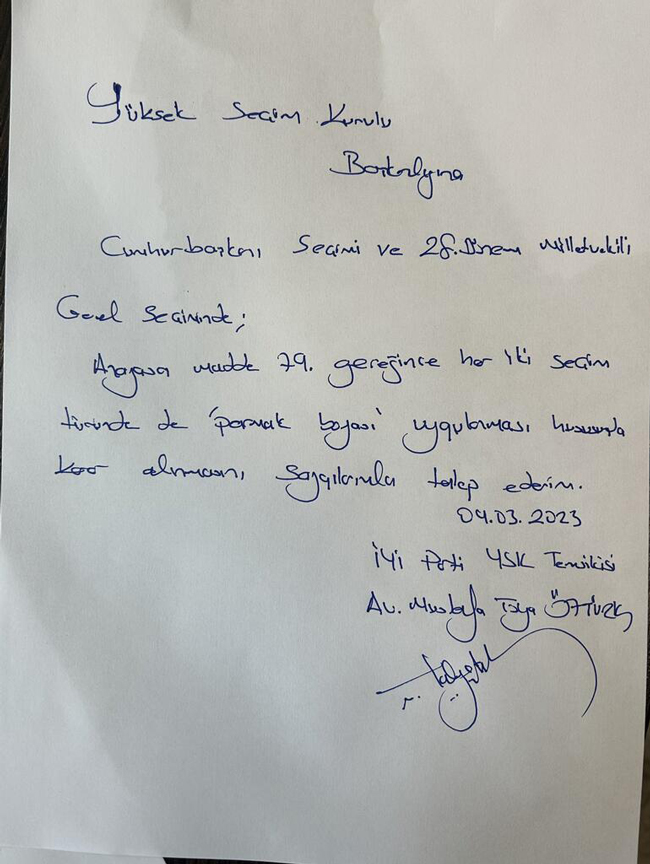 Yüksek Seçim Kurulu
Başkanlığına
Cumhurbaşkanı Seçimi ve 28.Dönem Milletvekili
Genel Seçiminde;
Anayasa madde 79. gereğince her iki seçim
türünde de 'parmak boyası' uygulanması hususunda
karar alınmasını, saygılarımla talep ederim.
04.03.2023
İYİ Parti YSK Temsilcisi
Av. Mustafa Tolga ÖZTÜRK